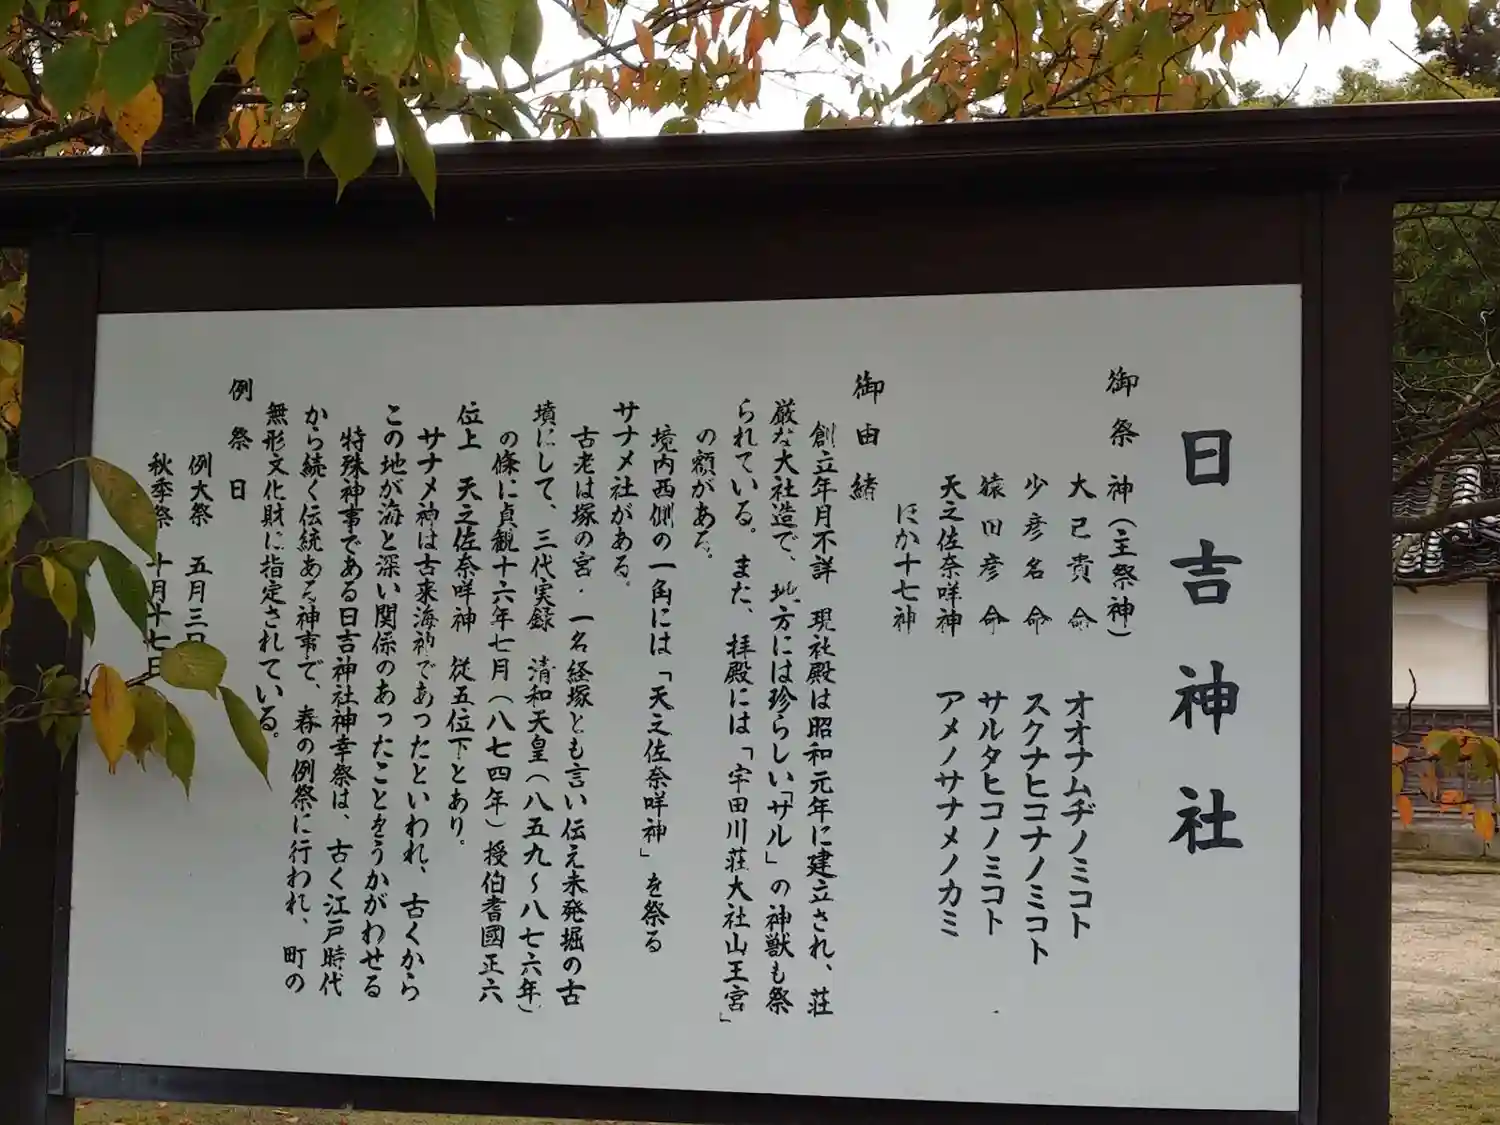 日吉神社
御祭神（主祭神）
大己貴命　オオナムヂノミコト
少彦名命　スクナヒコナノミコト
猿田彦命　サルタヒコノミコト
天之佐奈咩神　アメノサナメノカミ
ほか十七神
御由緒
創立年月不詳　現社殿は昭和元年に建立され、荘
厳な大社造で、地方には珍らしい「サル」の神獣も祭
られている。また、拝殿には「宇田川荘大社山王宮」
の額がある。
境内西側の一角には「天之佐奈咩神」を祭る
サナメ社がある。
古老は塚の宮・一名経塚とも言い伝え未発掘の古
墳にして、三代実録　清和天皇（八五九〜八七六年）
の條に貞観十六年七月（八七四年）授伯耆國正六
位上　天之佐奈咩神　従五位下とあり。
サナメ神は古来海神であったといわれ、古くから
この地が海と深い関係のあったことをうかがわせる
特殊神事である日吉神社神幸祭は、古く江戸時代
から続く伝統ある神事で、春の例祭に行われ、町の
無形文化財に指定されている。
例祭日
例大祭　五月三日
秋季祭　十月十七日